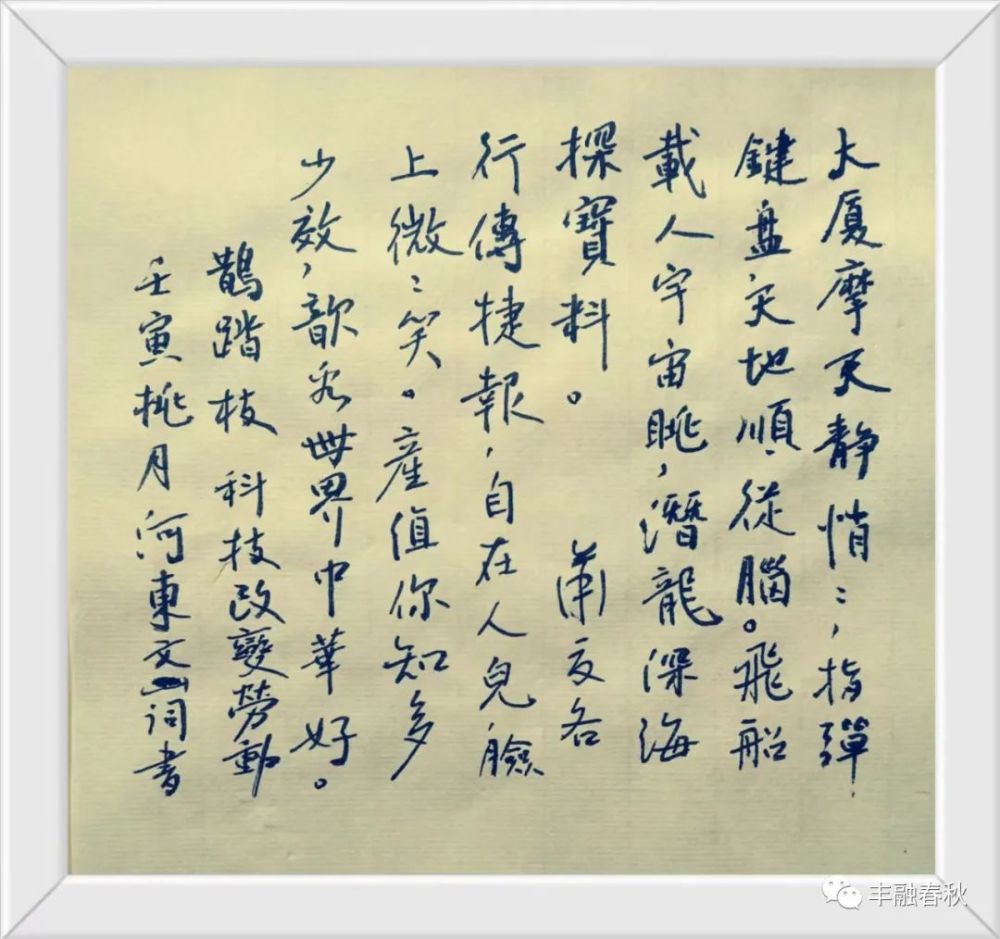 大厦摩天静悄〻，指彈
鍵盘，天地順從腦。飛船
載人宇宙眺，潛龍深海
探寶料。 友各
行傳捷報，自在人兒臉
上微〻笑。產值你知多
少效，歆世界中華好。
鵲踏枝 科技改變勞動
壬寅桃月河東文词書
丰融春秋